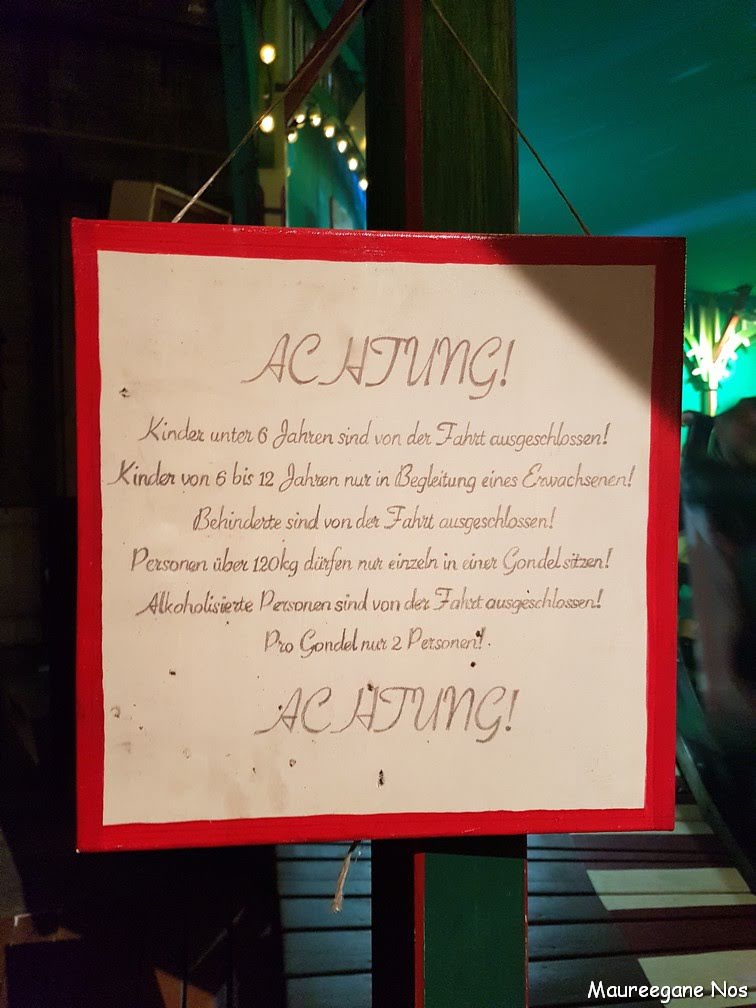 ACHTUNG!
Kinder unter 6 Jahren sind von der Fahrt ausgeschlossen!
Kinder von 6 bis 12 Jahren nur in Begleitung eines Erwachsenen!
Behinderte sind von der Fahrt ausgeschlossen!
Personen über 120kg dürfen nur einzeln in einer Gondel sitzen!
Alkoholisierte Personen sind von der Fahrt ausgeschlossen!
Pro Gondel nur 2 Personen!
ACHTUNG!
Maureegane Nos